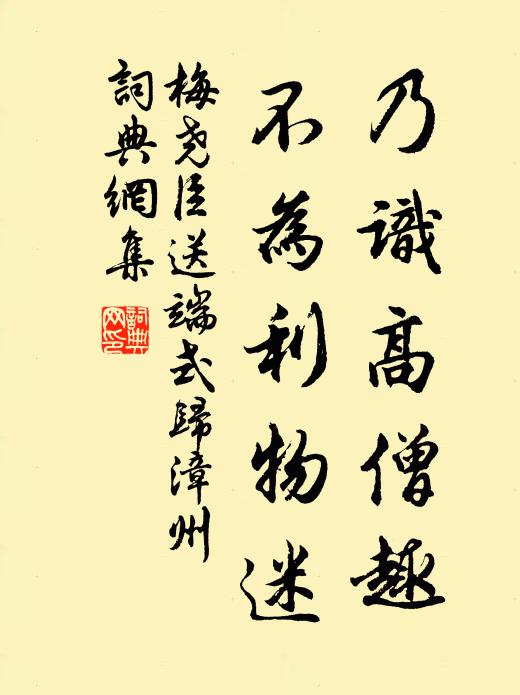 乃識高僧趣
不為利物迷
梅尧臣送端式歸漳州
詞典網集
詞典网印